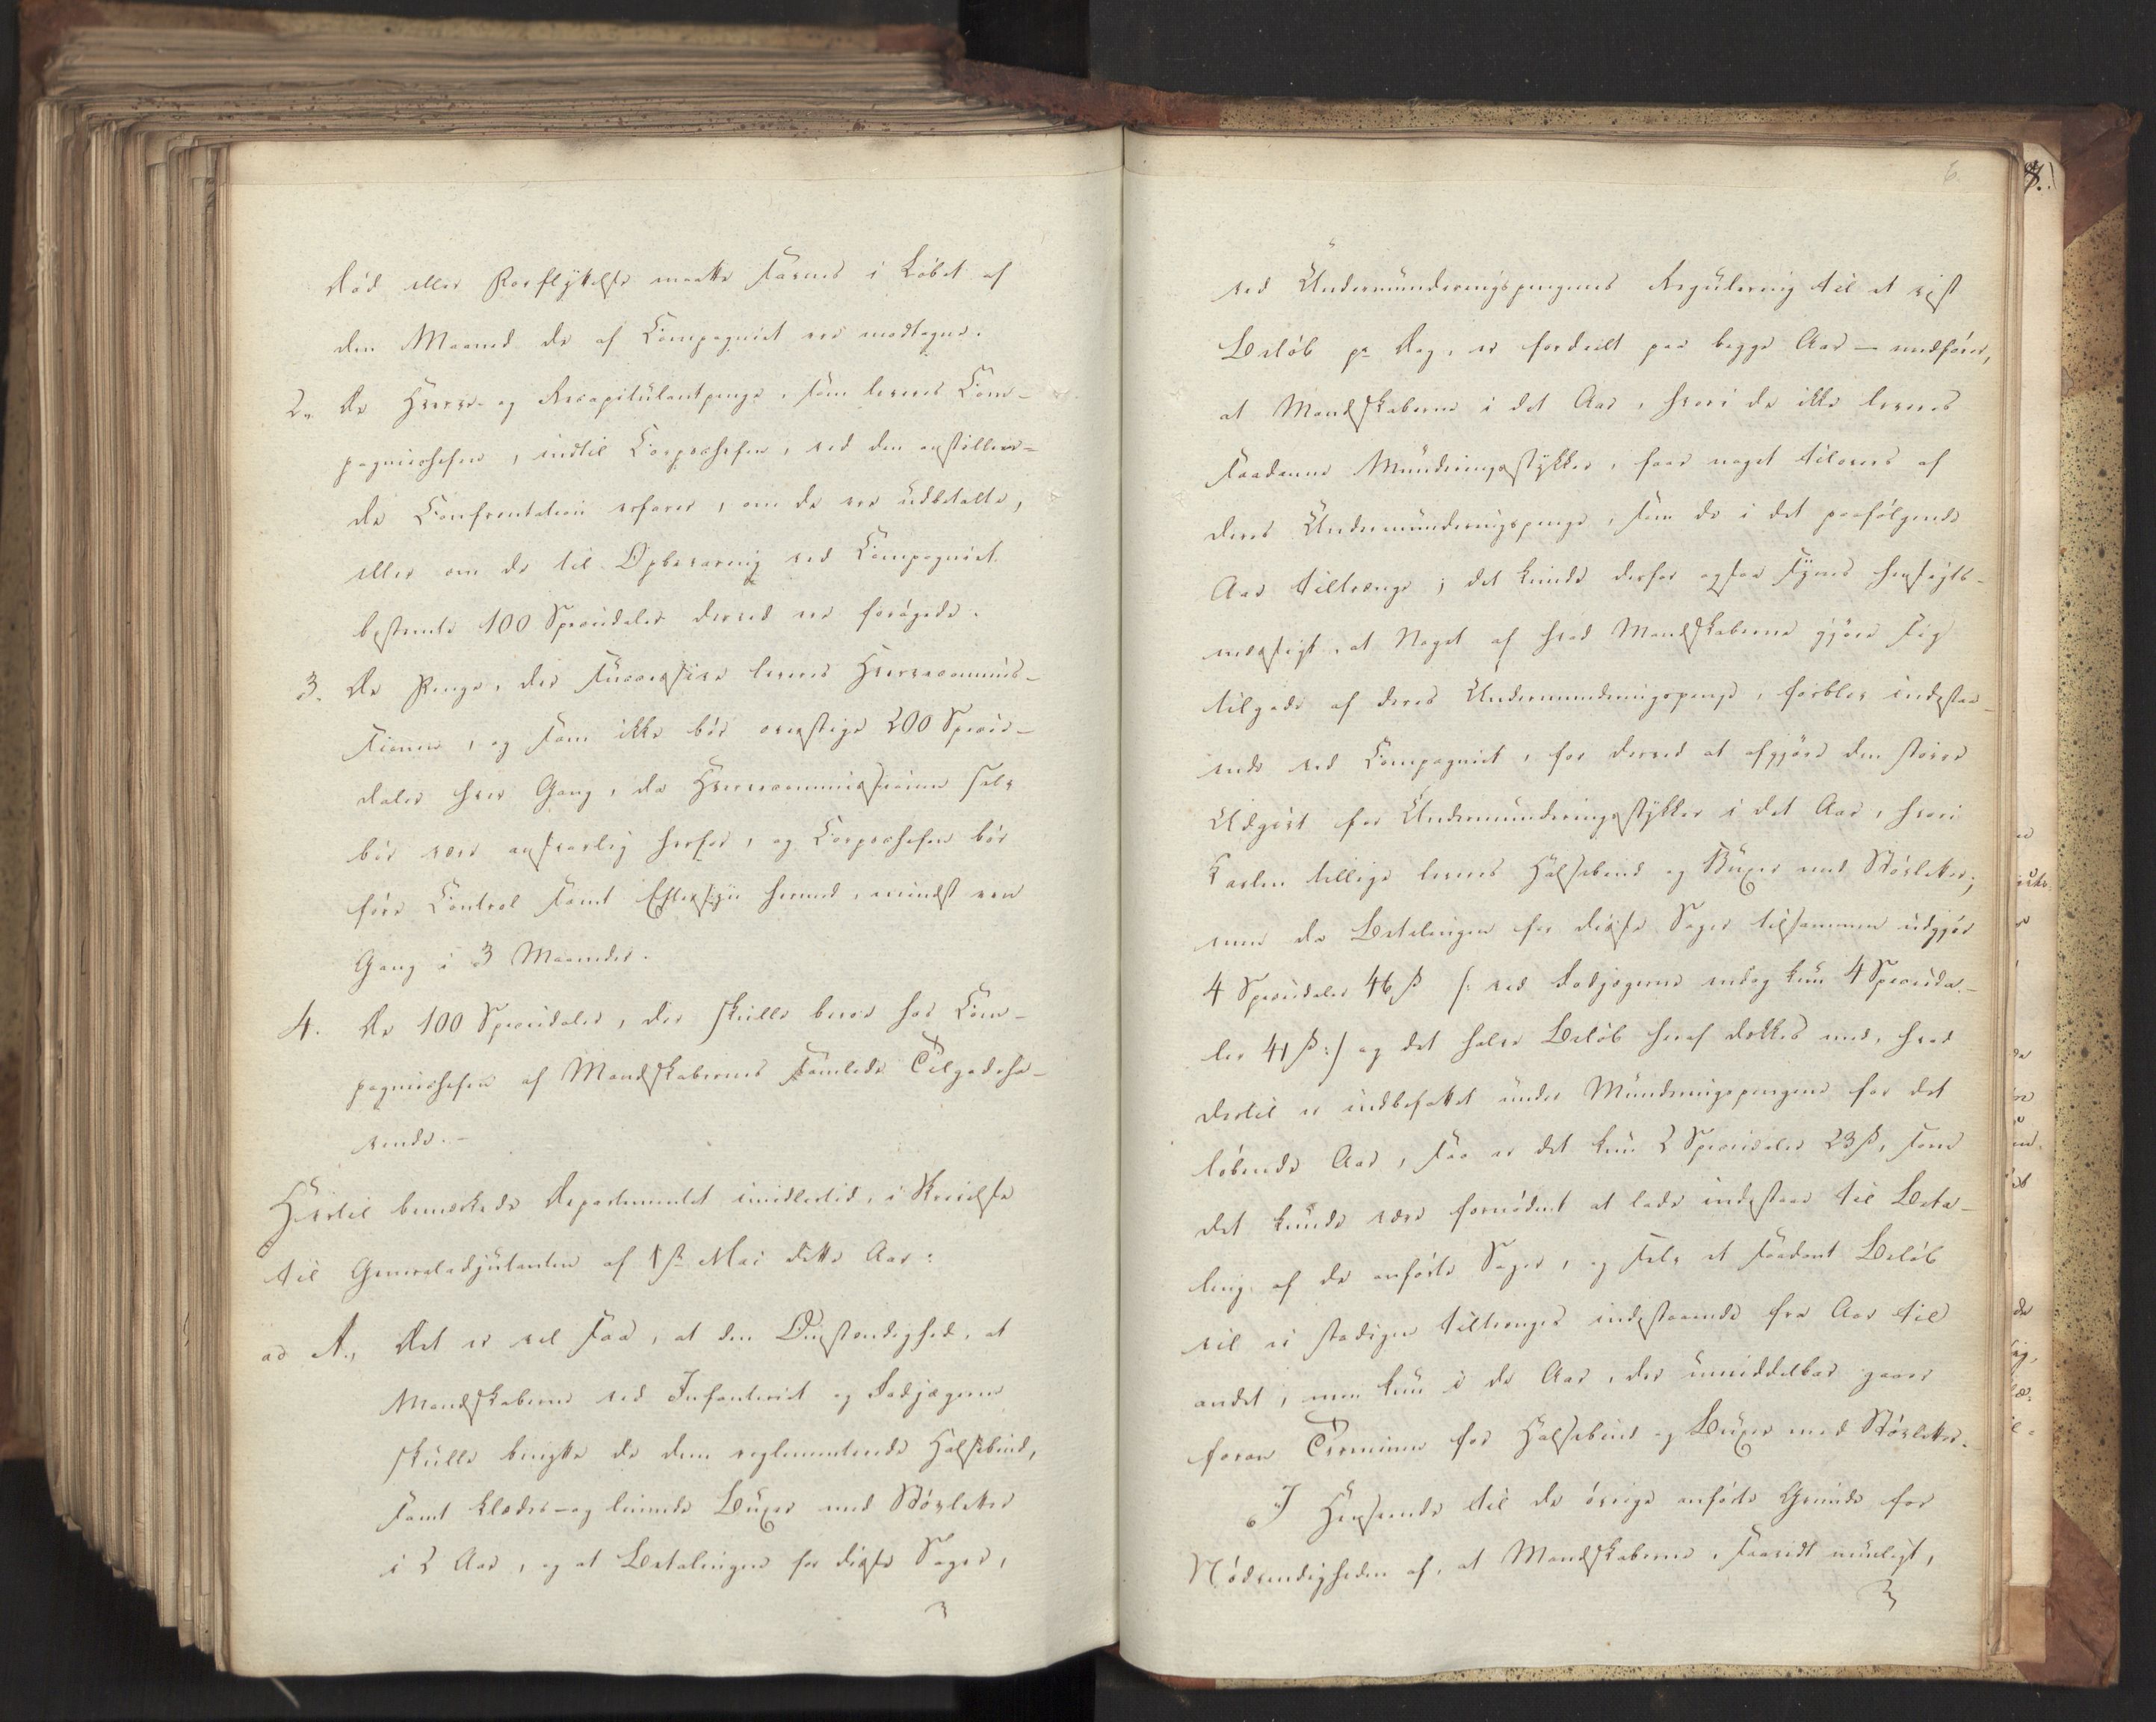 Död eller Forflyttelse maatte savnes i Löbet af
den Maaned de af Compagniet ere modtagne.
2. De Hverve- og Recapitulantpenge, som leveres Com-
pagniechefen, indtil Corpschefen, ved den anstillen-
de Confrontation erfarer, om de ere udbetalte,
eller om de til Opbevaring ved Compagniet
bestemte 100 Speciedaler derved ere forögede.
3. De Penge, der successive leveres Hvervecommis-
sionen, og som ikke bör overstige 200 Specie-
daler hver Gang, da Hvervecommissionen selv
bör være ansvarlig herfor, og Corpschefen bör
före Control samt Eftersyn hermed, mindst een
Gang i 3 Maaneder.
4. De 100 Speciedaler, der skulle beroe hos Com-
pagniechefen af Mandskabernes samlede Tilgodeha-
vende.-
Hertil bemærkede Departementet imidlertid, i Skrivelse
til Generaladjutanten af 1ste Mai dette Aar:
ad A., Det er vel saa, at den Omstændighed, at
Mandskaberne ved Infanteriet og Landjægerne
skulle benytte de dem reglementerede Halsbind,
samt Klædes- og linnede Buxer med Stövletter
i 2 Aar, og at Betalingen for disse Sager,
6.
ved Undermunderingspengenes Regulering til et vist
Belöb pr Dag, er fordeelt paa begge Aar — medförer,
at Mandskaberne i det Aar, hvori de ikke leveres
saadanne Munderingsstykker, faae noget tilovers af
deres Undermunderingspenge, som de i det paafölgende
Aar tiltrænge; det kunde derfor ogsaa synes hensigts-
mæssigt, at Noget af hvad Mandskaberne gjöre sig
tilgode af deres Undermunderingspenge, forblev indestaa-
ende ved Compagniet, for derved at afgjöre den större
Udgivt for Undermunderingsstykker i det Aar, hvori
Karlen tillige leveres Halsebind og Buxer med Stövletter;
men da Betalingen for disse Sager tilsammen udgjör
4 Speciedaler 46 ß /: ved Landjægerne endog kun 4 Specieda-
ler 41 ß :/ og det halve Belöb heraf dækkes med, hvad
dertil er indbefattet under Munderingspengene for det
löbende Aar, saa er det kun 2 Speciedaler 23 ß, som
det kunde være fornödent at lade indestaae til Beta-
ling af de anförte Sager, og selv et saadant Belöb
vil ei stadigen tiltrænges indestaaende fra Aar til
andet, men kun i de Aar, der umiddelbar gaaer
foran Terminen for Halsebind og Buxer med Stövletter.
I Henseende til de övrige anförte Grunde for
Nödvendigheden af, at Mandskaberne, saavidt mueligt,